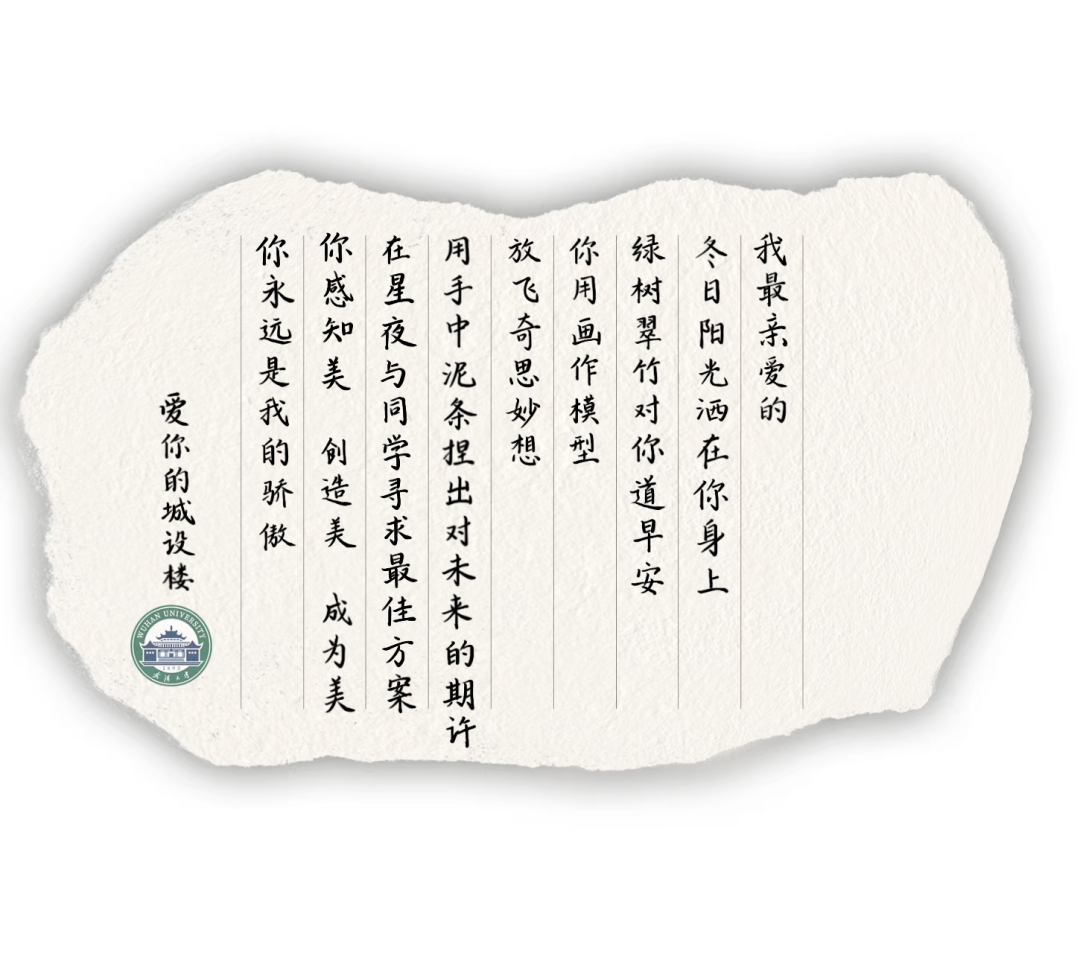 我最亲爱的
冬日阳光洒在你身上
绿树翠竹对你道早安
你用画作模型
放飞奇思妙想
用手中泥条捏出对未来的期许
在星夜与同学寻求最佳方案
你感知美 创造美 成为美
你永远是我的骄傲
爱你的城设楼
WUHAN UNIVERSITY
1893
武汉大学